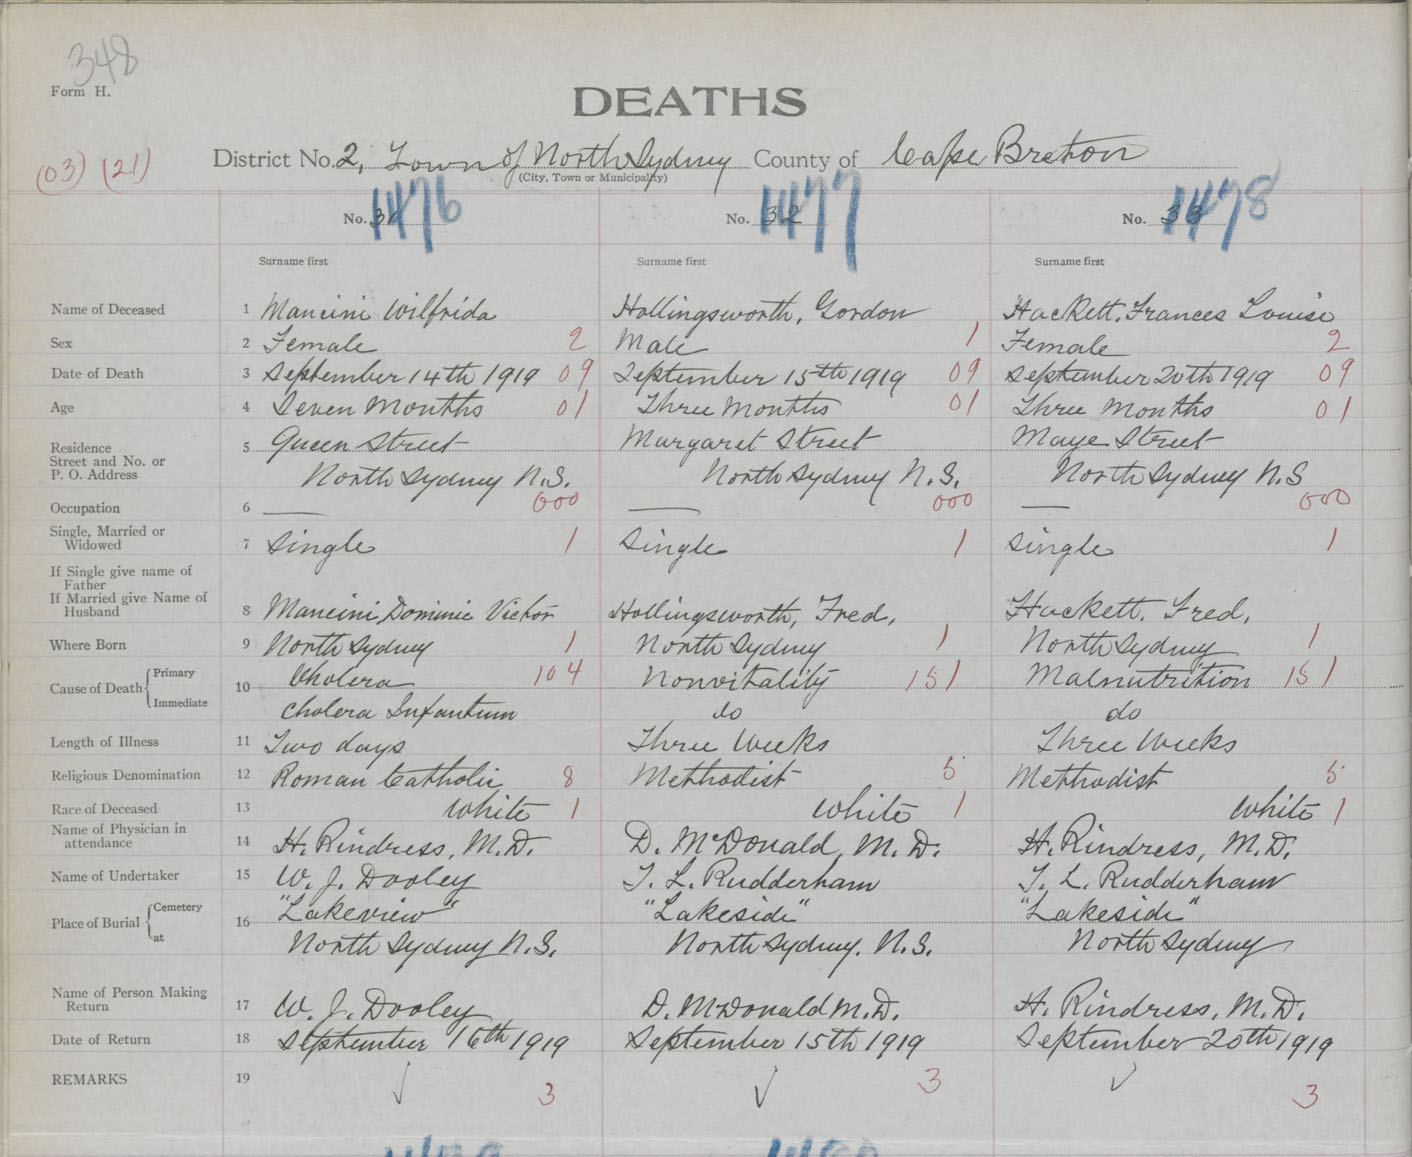 348
Form H.
DEATHS
(03) (21)
District No. 2, Town of North Sydney County of Cape Breton
(City, Town or Municipality)
1476 1477 1478
No. 31 No. 32 No. 33
Surname first Surname first Surname first
Name of Deceased 1 Mancini Wilfrida Hollingsworth, Gordon Hackett, Frances Louise
Sex 2 Female 2 Male 1 Female 2
Date of Death 3 September 14th 1919 09 September 15th 1919 09 September 20th 1919 09
Age 4 Seven Months 01 Three Months 01 Three Months 01
Residence 5 Queen Street Margaret Street Maye Street
Street and No. or
P. O. Address North Sydney N.S. North Sydney N.S. North Sydney N.S
Occupation 6 — 000 — 000 — 000
Single, Married or
Widowed 7 Single 1 Single 1 Single 1
If Single give name of
Father
If Married give Name of
Husband 8 Mancini, Dominic Victor Hollingsworth, Fred, Hackett. Fred,
Where Born 9 North Sydney 1 North Sydney 1 North Sydney 1
Cause of Death { Primary 10 Cholera 104 Nonvitality 151 Malnutrition 151
Immediate Cholera Infantum do do
Length of Illness 11 Two days Three Weeks Three Weeks
Religious Denomination 12 Roman Catholic 8 Methodist 5 Methodist 5
Race of Deceased 13 White 1 White 1 White 1
Name of Physician in
attendance 14 H. Rindress, M.D. D. McDonald, M.D. H. Rindress, M.D.
Name of Undertaker 15 W. J. Dooley T. L. Rudderham T. L. Rudderham
Place of Burial { Cemetery 16 "Lakeview" "Lakeside" "Lakeside"
at North Sydney N.S. North Sydney. N.S. North Sydney
Name of Person Making
Return 17 W. J. Dooley D. McDonald M.D. H. Rindress, M.D.
Date of Return 18 September 16th 1919 September 15th 1919 September 20th 1919
REMARKS 19 3 3 3